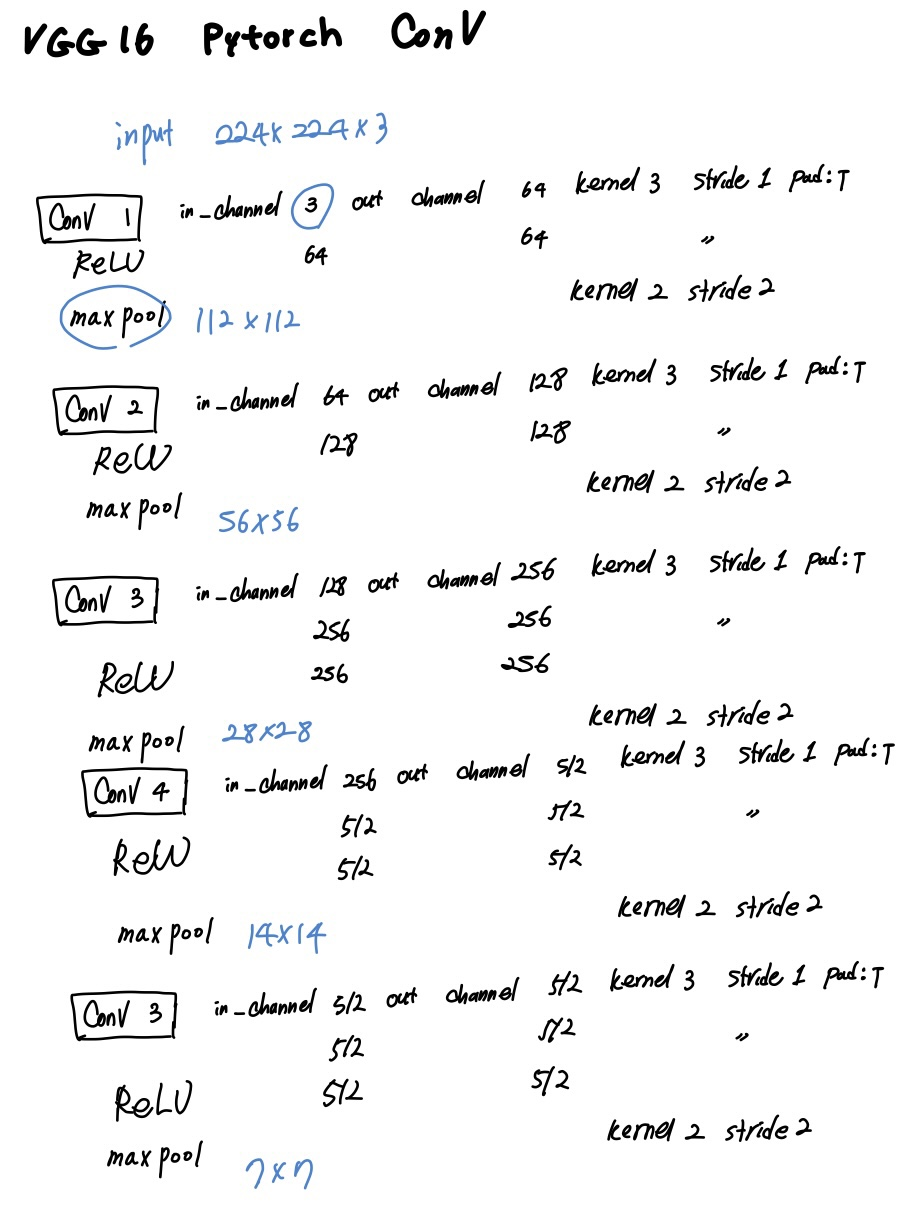 VGG16 Pytorch Conv
input 224x224x3
Conv 1 in_channel 3 out channel 64 kernel 3 stride 1 pad:T
64 64 "
ReLU
kernel 2 stride 2
max pool 112 x 112
Conv 2 in_channel 64 out channel 128 kernel 3 stride 1 pad:T
128 128 "
ReLU
kernel 2 stride 2
max pool 56x56
Conv 3 in_channel 128 out channel 256 kernel 3 stride 1 pad:T
256 256 "
ReLU 256 256
kernel 2 stride 2
max pool 28x28
Conv 4 in_channel 256 out channel 512 kernel 3 stride 1 pad:T
512 512 "
ReLU 512 512
kernel 2 stride 2
max pool 14x14
Conv 3 in_channel 512 out channel 512 kernel 3 stride 1 pad:T
512 512 "
ReLU 512 512
kernel 2 stride 2
max pool 7x7